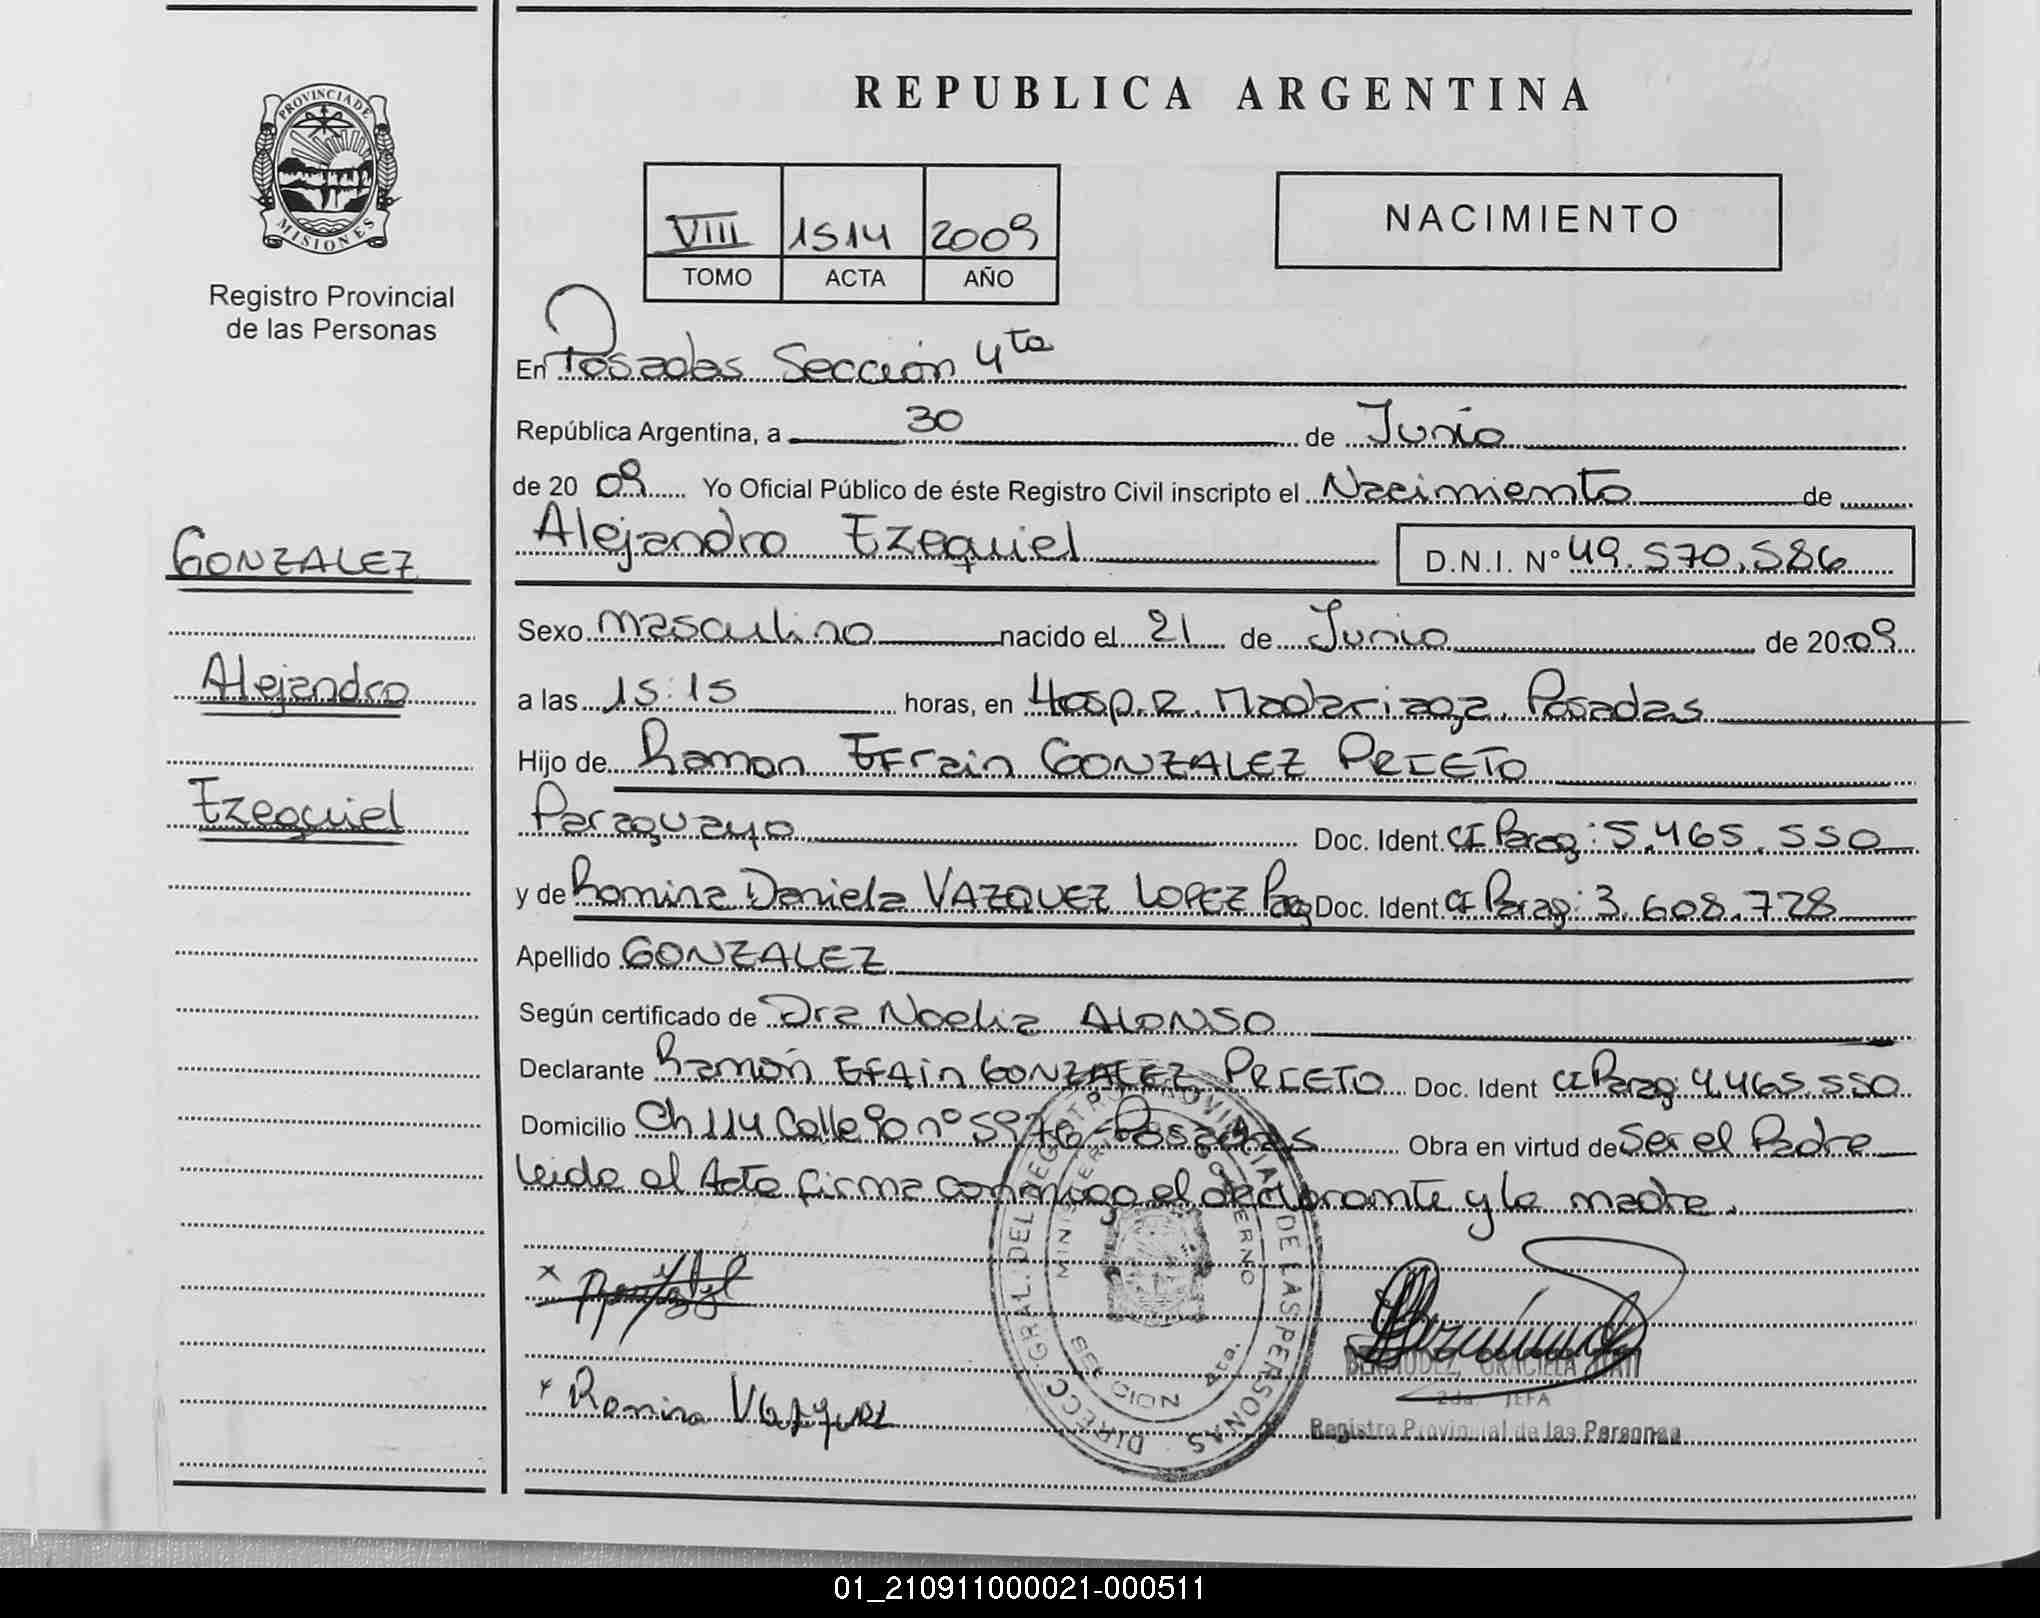 REPUBLICA ARGENTINA
PROVINCIA DE
MISIONES
Registro Provincial
de las Personas
VIII 1514 2009
TOMO ACTA AÑO
NACIMIENTO
En Posadas Sección 4ta
República Argentina, a 30 de Junio
de 20 09 Yo Oficial Público de éste Registro Civil inscripto el Nacimiento de
Alejandro Ezequiel D.N.I. Nº 49.570.586
GONZALEZ
Alejandro
Ezequiel
Sexo masculino nacido el 21 de Junio de 20 09
a las 15:15 horas, en Hosp. R. Madariaga. Posadas
Hijo de Ramon Efrain GONZALEZ PRIETO
Paraguayo Doc. Ident. CI Parag: 5.465.550
y de Romina Daniela VAZQUEZ LOPEZ Parg Doc. Ident. CI Parag: 3.608.728
Apellido GONZALEZ
Según certificado de Dra Noelia ALONSO
Declarante Ramón EFAin GONZALEZ PRIETO Doc. Ident CI Parag: 4.465.550
Domicilio Ch 114 Calle 90 nº 5976 - Posadas Obra en virtud de Ser el Padre
leida el Acta firma conmigo el declarante y la madre.
DIRECC. GRAL. DEL REGISTRO PROVINCIAL DE LAS PERSONAS
MINISTERIO GOBIERNO
4ta.
x
x Romina Vazquez
BERMUDEZ, GRACIELA
2da. JEFA
Registro Provincial de las Personas
01_210911000021-000511